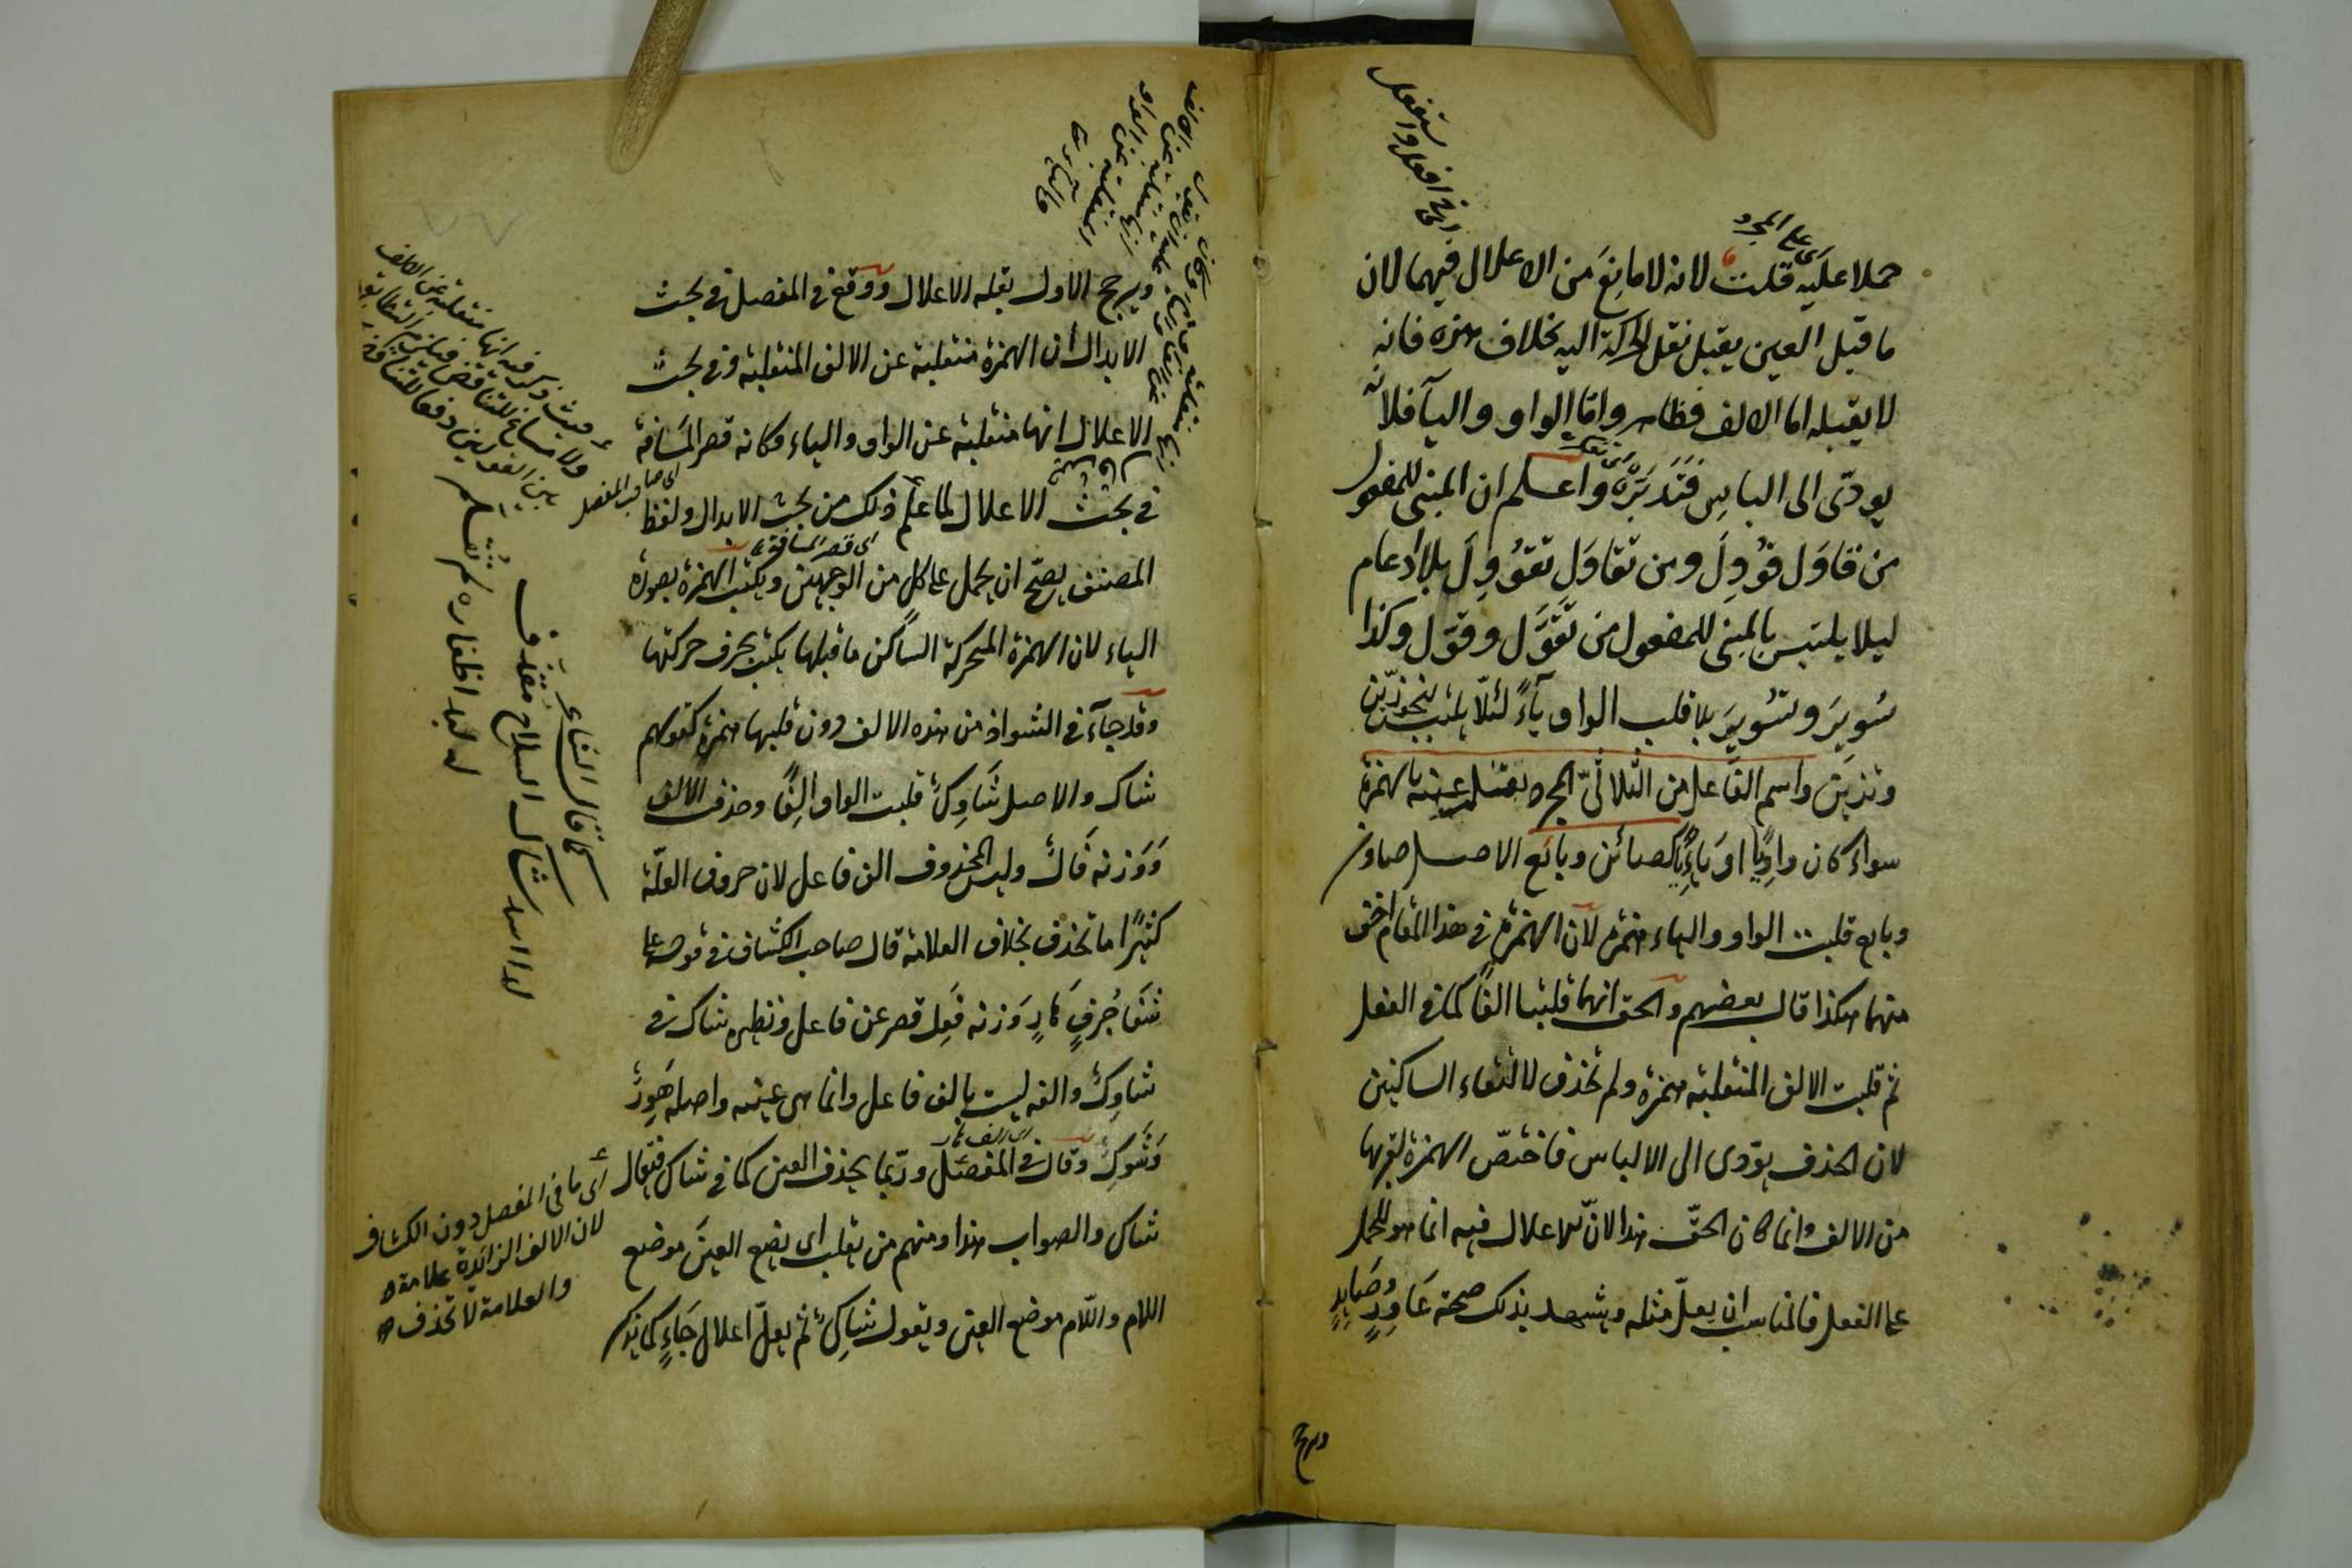 حملا عليه قلت لانه لا مانِعَ من الاعلال فيهما لان
اى على المجرد
ما قبل العين يقبل نقل الحركة اليه بخلاف هذه فانه
لا يقبله اما الالف فظاهر واما الواو والياء فلانه
يودّى الى الباس فَتَدَبَّرْهُ واعلم ان المبنى للمفعول
من قاوَل قُوْوِلَ ومن تقاوَل تُقُوْوِلَ بلا ادغام
ليلا يلتبس بالمبنى للمفعول من تَقَوَّل وقوّل وكذا
سُويِرَ وتُسُويِرَ بلا قلب الواو ياءً لئلا يلتبس بنحو زيّن
وتزيّن واسم الفاعل من الثلاثىّ المجرد يعتل عينه بالهمزة
سواء كان واوِيًّا او يائِيًّا كصائن وبائع الاصل صاون
وبايع قلبت الواو والياء همزة لان الهمزة فى هذا المقام اخف
منهما هكذا قال بعضهم والحق انهما قلبتا الفًا كما فى الفعل
ثم قلبت الالف المنقلبة همزة ولم تحذف لالتقاء الساكنين
لان الحذف يؤدى الى الالباس فاختصّ الهمزة لقربها
من الالف وانما كان الحقّ هذا لانّ الاعلال فيه انما هو للحمل
على الفعل فالمناسب ان يعلّ مثله ويشهد بذلك صحة عَاوِدٍ وصَايِدٍ
ويرجح
ويرجح الاول بقلة الاعلال ووقع فى المفصل فى بحث
الابدال أن الهمزة منقلبة عن الالف المنقلبة وفى بحث
الاعلال انها منقلبة عن الواو والياء وكانه قصر المسَافة
فى بحث الاعلال لما علم ذلك من بحث الابدال ولفظ
اى صاحب المفصل
اى قصر المسافة
المصنف يصحّ ان يحمل على كل من الوجهين ويكتب الهمزة بصورة
الياء لان الهمزة المتحركة الساكن ما قبلها يكتب بحرف حركتها
وقد جاء فى الشواذ من هذه الالف دون قلبها همزة كقولهم
شاك والاصل شَاوِكٌ قلبت الواو الِفًا وحذف الالف
وَوَزنه فَالٌ وليس المحذوف الف فاعل لان حروف العلّة
كثيرًا ما تحذف بخلاف العلامة قال صاحب الكشاف فى قوله على
شَفَا جُرُفٍ هَارٍ وَزنه فَعِل قصر عن فاعل ونظيره شاك فى
شاوِكٌ والفه ليست بالف فاعل وانما هى عينه واصله هَوِرٌ
وَشَوِكٌ وقال فى المفصّل وربّما يحذف العين كما فى شاك فيقال
شاك والصواب هذا ومنهم من يقلب اى يضع العينَ موضع
اللام واللّام موضع العين ويقول شاكٍ ثم يعلّ اعلال جَاءٍ كما يذكر
اى ما فى المفصل دون الكشاف
لان الالف الزائدة علامة
والعلامة لا تحذف
كما قال الشاعر
لدا اسد شاك السلاح مقذف
له لبد اظفاره لم تقلم